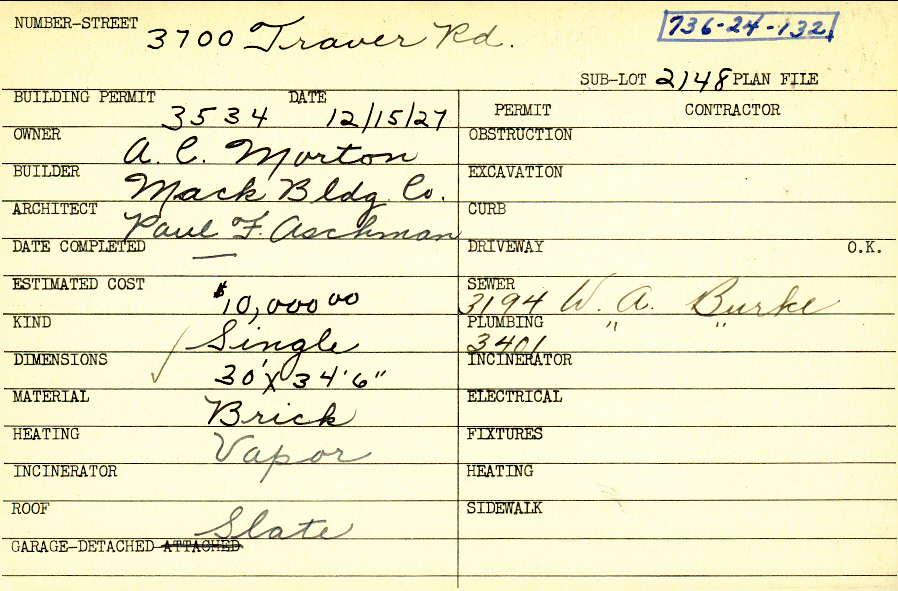 NUMBER-STREET 3700 Traver Rd. 736-24-132
SUB-LOT 2148 PLAN FILE
BUILDING PERMIT 3534 DATE 12/15/27
OWNER A. C. Morton
BUILDER Mack Bldg. Co.
ARCHITECT Paul F. Aschman
DATE COMPLETED —
ESTIMATED COST $10,000 00
KIND Single
DIMENSIONS 30' X 34'6"
MATERIAL Brick
HEATING Vapor
INCINERATOR
ROOF Slate
GARAGE-DETACHED ATTACHED
PERMIT CONTRACTOR
OBSTRUCTION
EXCAVATION
CURB
DRIVEWAY O.K.
SEWER 3194 W. A. Burke
PLUMBING 3401 " "
INCINERATOR
ELECTRICAL
FIXTURES
HEATING
SIDEWALK